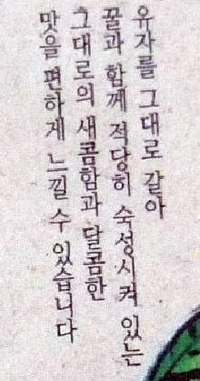 유자를 그대로 갈아
꿀과 함께 적당히 숙성시켜 있는
그대로의 새콤함과 달콤한
맛을 편하게 느낄 수 있습니다